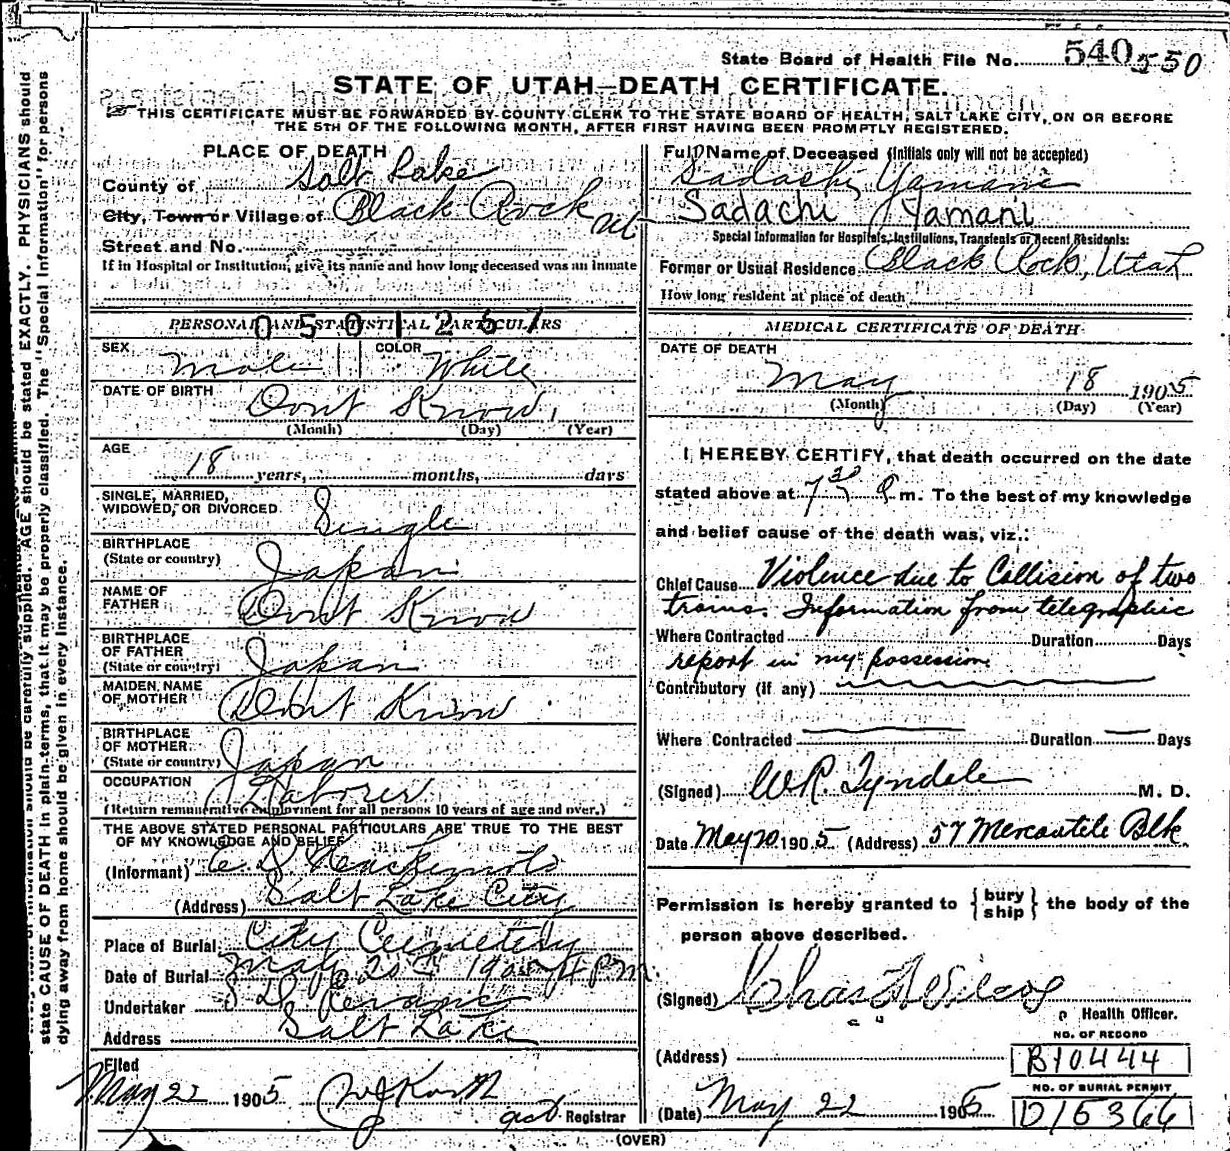 State Board of Health File No. 540 550
STATE OF UTAH—DEATH CERTIFICATE.
THIS CERTIFICATE MUST BE FORWARDED BY COUNTY CLERK TO THE STATE BOARD OF HEALTH, SALT LAKE CITY, ON OR BEFORE
THE 5TH OF THE FOLLOWING MONTH, AFTER FIRST HAVING BEEN PROMPTLY REGISTERED.
PLACE OF DEATH
County of Salt Lake
City, Town or Village of Black Rock Ut
Street and No.
If in Hospital or Institution, give its name and how long deceased was an inmate
PERSONAL AND STATISTICAL PARTICULARS
0501267
SEX Male COLOR White
DATE OF BIRTH Dont Know,
(Month) (Day) (Year)
AGE
18 years, months, days
SINGLE, MARRIED,
WIDOWED, OR DIVORCED Single
BIRTHPLACE
(State or country) Japan
NAME OF
FATHER Dont Know
BIRTHPLACE
OF FATHER
(State or country) Japan
MAIDEN NAME
OF MOTHER Dont Know
BIRTHPLACE
OF MOTHER
(State or country) Japan
OCCUPATION Laborer
(Return remunerative employment for all persons 10 years of age and over.)
THE ABOVE STATED PERSONAL PARTICULARS ARE TRUE TO THE BEST
OF MY KNOWLEDGE AND BELIEF
(Informant)
(Address) Salt Lake City
Place of Burial City Cemetery
Date of Burial May 20th 1905 4 pm.
Undertaker
Address Salt Lake
Filed
May 22 1905 Registrar
Full Name of Deceased (Initials only will not be accepted)
Sadachi Yamani
Sadachi Yamani
Special Information for Hospitals, Institutions, Transients or Recent Residents:
Former or Usual Residence Black Rock, Utah
How long resident at place of death
MEDICAL CERTIFICATE OF DEATH
DATE OF DEATH
May 18 1905
(Month) (Day) (Year)
I HEREBY CERTIFY, that death occurred on the date
stated above at 7 30 P. m. To the best of my knowledge
and belief cause of the death was, viz.:
Chief Cause Violence due to Collision of two
trains. Information from telegraphic
Where Contracted Duration Days
report in my possession
Contributory (if any)
Where Contracted Duration Days
(Signed) W.R. Tyndale M. D.
Date May 20 1905 (Address) 57 Mercantile Blk.
Permission is hereby granted to { bury
ship } the body of the
person above described.
(Signed) Chas F Wilcox
Health Officer.
NO. OF RECORD
(Address) B10444
NO. OF BURIAL PERMIT
(Date) May 22 1905 D15366
(OVER)
state CAUSE OF DEATH in plain terms, that it may be properly classified. The "Special Information" for persons
dying away from home should be given in every instance.
should be carefully supplied. AGE should be stated EXACTLY. PHYSICIANS should